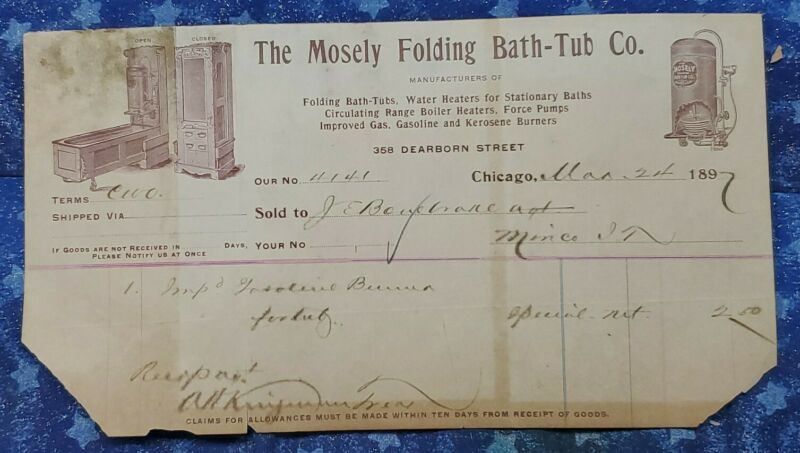 OPEN CLOSED
The Mosely Folding Bath-Tub Co.
MANUFACTURERS OF
Folding Bath-Tubs, Water Heaters for Stationary Baths
Circulating Range Boiler Heaters, Force Pumps
Improved Gas, Gasoline and Kerosene Burners
MOSELY
358 DEARBORN STREET
OUR NO. 4141 Chicago, Mar 24 1897
TERMS
SHIPPED VIA
Sold to J E agt
Minco I.T.
IF GOODS ARE NOT RECEIVED IN DAYS, YOUR NO
PLEASE NOTIFY US AT ONCE
1. Imp'd Gasoline Burner
for tub special net 2.50
Treas
CLAIMS FOR ALLOWANCES MUST BE MADE WITHIN TEN DAYS FROM RECEIPT OF GOODS.